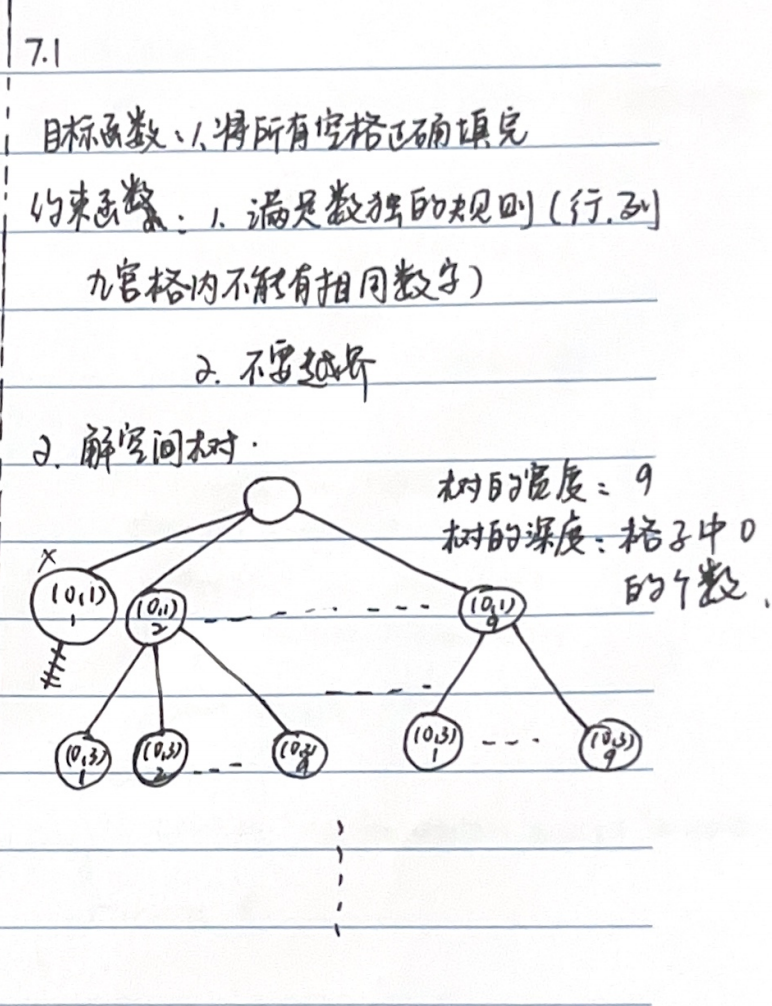 7.1
目标函数:1.将所有空格正确填完
约束函数:1.满足数独的规则(行.列
九宫格内不能有相同数字)
2.不要越界
2.解空间树.
树的宽度:9
树的深度:格子中0
的个数.
×
(0,1)
1
(0,1)
2
(0,1)
9
(0,3)
1
(0,3)
2
(0,3)
9
(0,3)
1
(0,3)
9